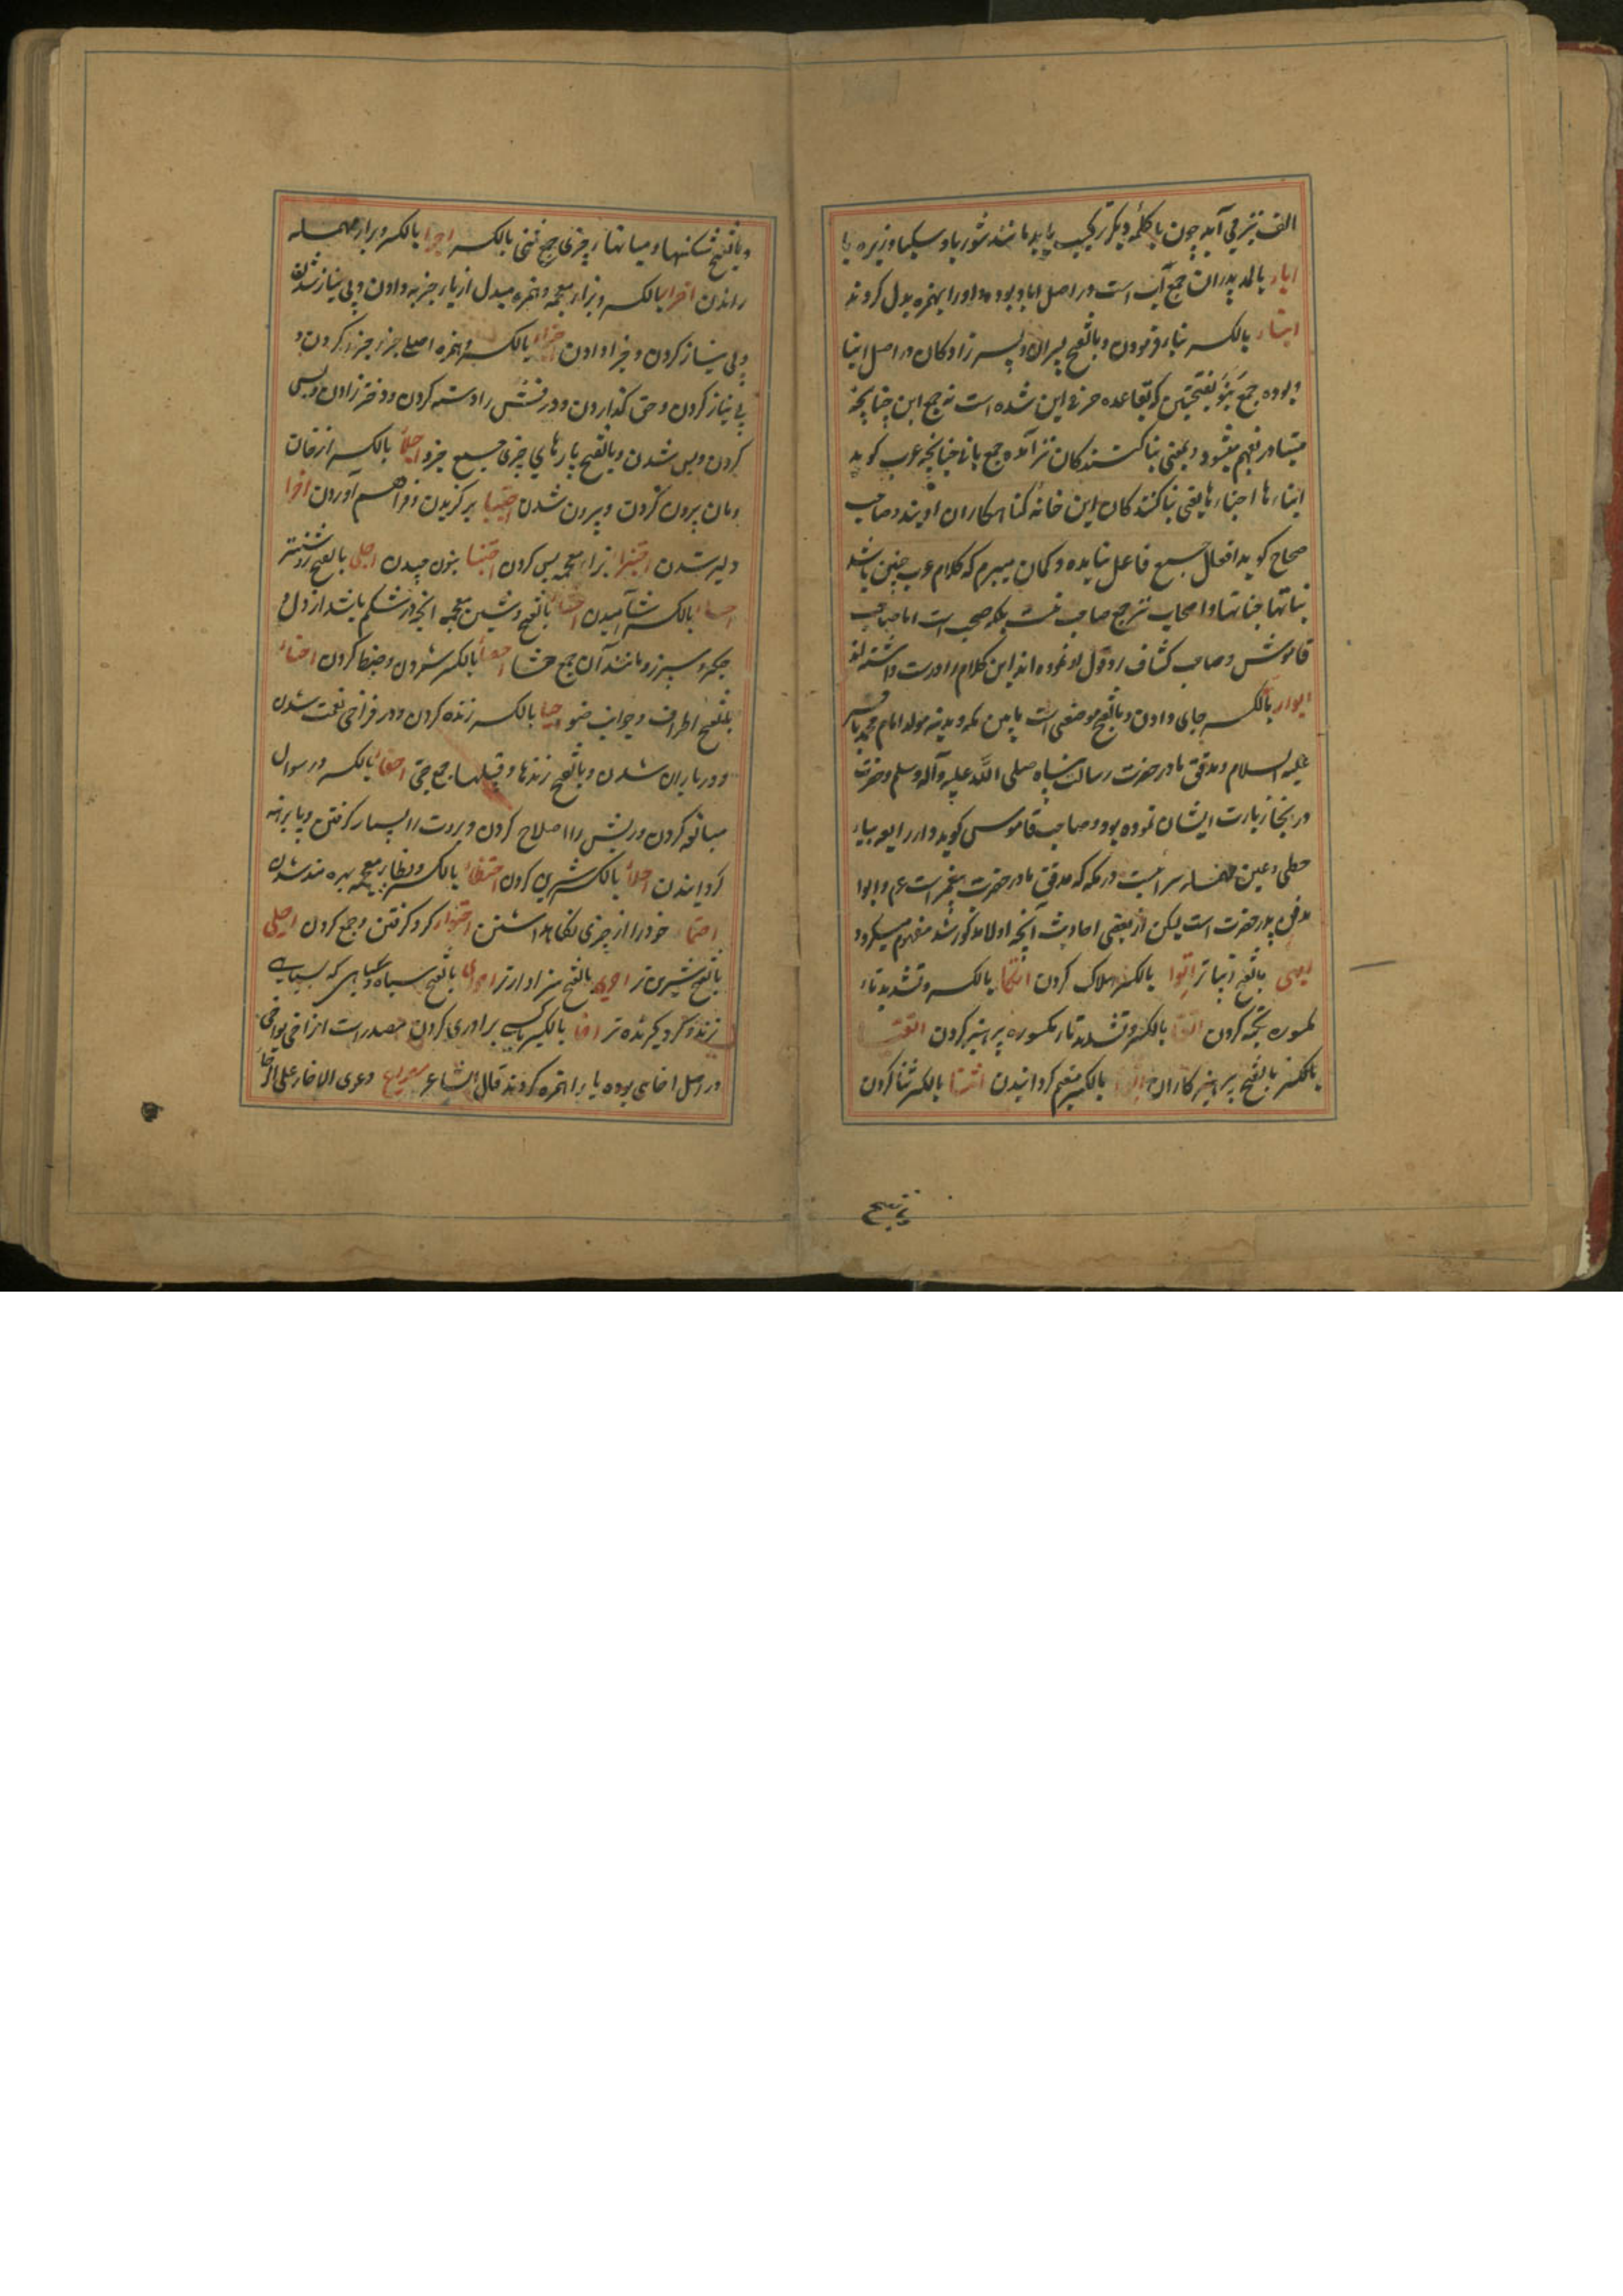 الف نیز می آید چون با کلمه دیگر ترکیب یابد مانند شوربا و سکبا و زیره با
اباء بالمد پدران جمع اب است در اصل اباو بوده واو را بهمزه بدل کردند
ابناء بالکسر بنا فرمودن و بالفتح پسران و پسر زادگان در اصل ابنا
و بوده جمع بنو بفتحتین که بقاعده صرف این شده است نه جمع ابن چنانچه
متبادر بفهم میشود و بمعنی بنا کنندگان نیز آمده جمع بانی چنانچه عرب گوید
ابناءها اجناءها یعنی بنا کنندگان این خانه گناهکاران اویند و صاحب
صحاح گوید افعال جمع فاعل نیامده و گمان میبرم که کلام عرب چنین باشد
بناتها جناتها و اصحاب نیز جمع صاحب نیست بلکه صحب است اما صاحب
قاموس و صاحب کشاف رد قول او نموده اند این کلام را درست داشته اند
ابواء بالکسر جای دادن و بالفتح موضعی است مابین مکه و مدینه مولد امام محمد باقر
علیه السلام و مدفن مادر حضرت رسالت پناه صلی الله علیه و آله وسلم و حضرت
در آنجا زیارت ایشان نموده بود و صاحب قاموس گوید دار رابعه بیاء
حطی و عین مهمله سرائیست در مکه که مدفن مادر حضرت پیغمبر است عم و ابوا
مدفن پدر حضرت است لیکن از بعضی احادیث آنچه اولا مذکور شد مفهوم میگردد
ابهی بالفتح زیباتر اتوا بالکسر هلاک کردن اتکا بالکسر و تشدید تاء
کمسوره تکیه کردن اتقا بالکسر و تشدید تاء مکسوره پرهیز کردن اتقیا
بالفتح پرهیزکاران بالکسر مقیم گردانیدن اثنا بالکسر ثنا کردن
و بالفتح شکنها و میانهاء چیزی جمع ثنی بالکسر اجرا بالکسر و براء مهمله
راندن اجزا بالکسر و بزاء معجمه و همزه مبدل از یاء جزیه دادن و بی نیاز شدن
و بی نیاز کردن و جزا دادن اجزاء بالکسر و همزه اصلی جزء جزء کردن و
بی نیاز کردن و حق گذاردن و درفش را دسته کردن و دختر زادن و بس
کردن و بس شدن و بالفتح پارهای چیزی جمع جزو اجلا بالکسر از خان
و مان بیرون کردن و بیرون شدن اجتبا برگزیدن و فراهم آوردن اجرا
دلیر شدن اجتزا بزاء معجمه بس کردن اجتنا بنون چیدن اجلی بالفتح روشنتر
احسا بالکسر آشامیدن احشا بالفتح و شین معجمه انچه در شکم باشد از دل و
جگر و سپرز و مانند آن جمع حشا احصا بالکسر شمردن و ضبط کردن احناء
بالفتح اطراف و جوانب احیا بالکسر زنده کردن و در فراخی نعمت شدن
و در باران شدن و بالفتح زندها و قبیلها جمع حی احفا بالکسر در سوال
مبالغه کردن و ریش را اصلاح کردن و بروت را بسیار گرفتن و پا برهنه
گردانیدن احلا بالکسر شیرین کردن احتظا بالکسر و بظاء معجمه بهره مند شدن
احتما خود را از چیزی نگاهداشتن احتوا گرد گرفتن و جمع کردن احلی
بالفتح شیرین تر احری بالفتح سزاوارتر احوی بالفتح سیاه و گیاهی که بسیاهی
زند و گرد گیرنده تر اخا بالکسر با کسی برادری کردن مصدر است از اخی یواخی
در اصل اخای بوده یا را همزه کردند قال الشاعر مصراع دعوی الاخاء علی الرخاء
بالفتح